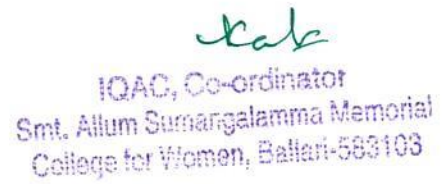 IQAC, Co-ordinator
Smt. Allum Sumangalamma Memorial
College for Women, Ballari-583103